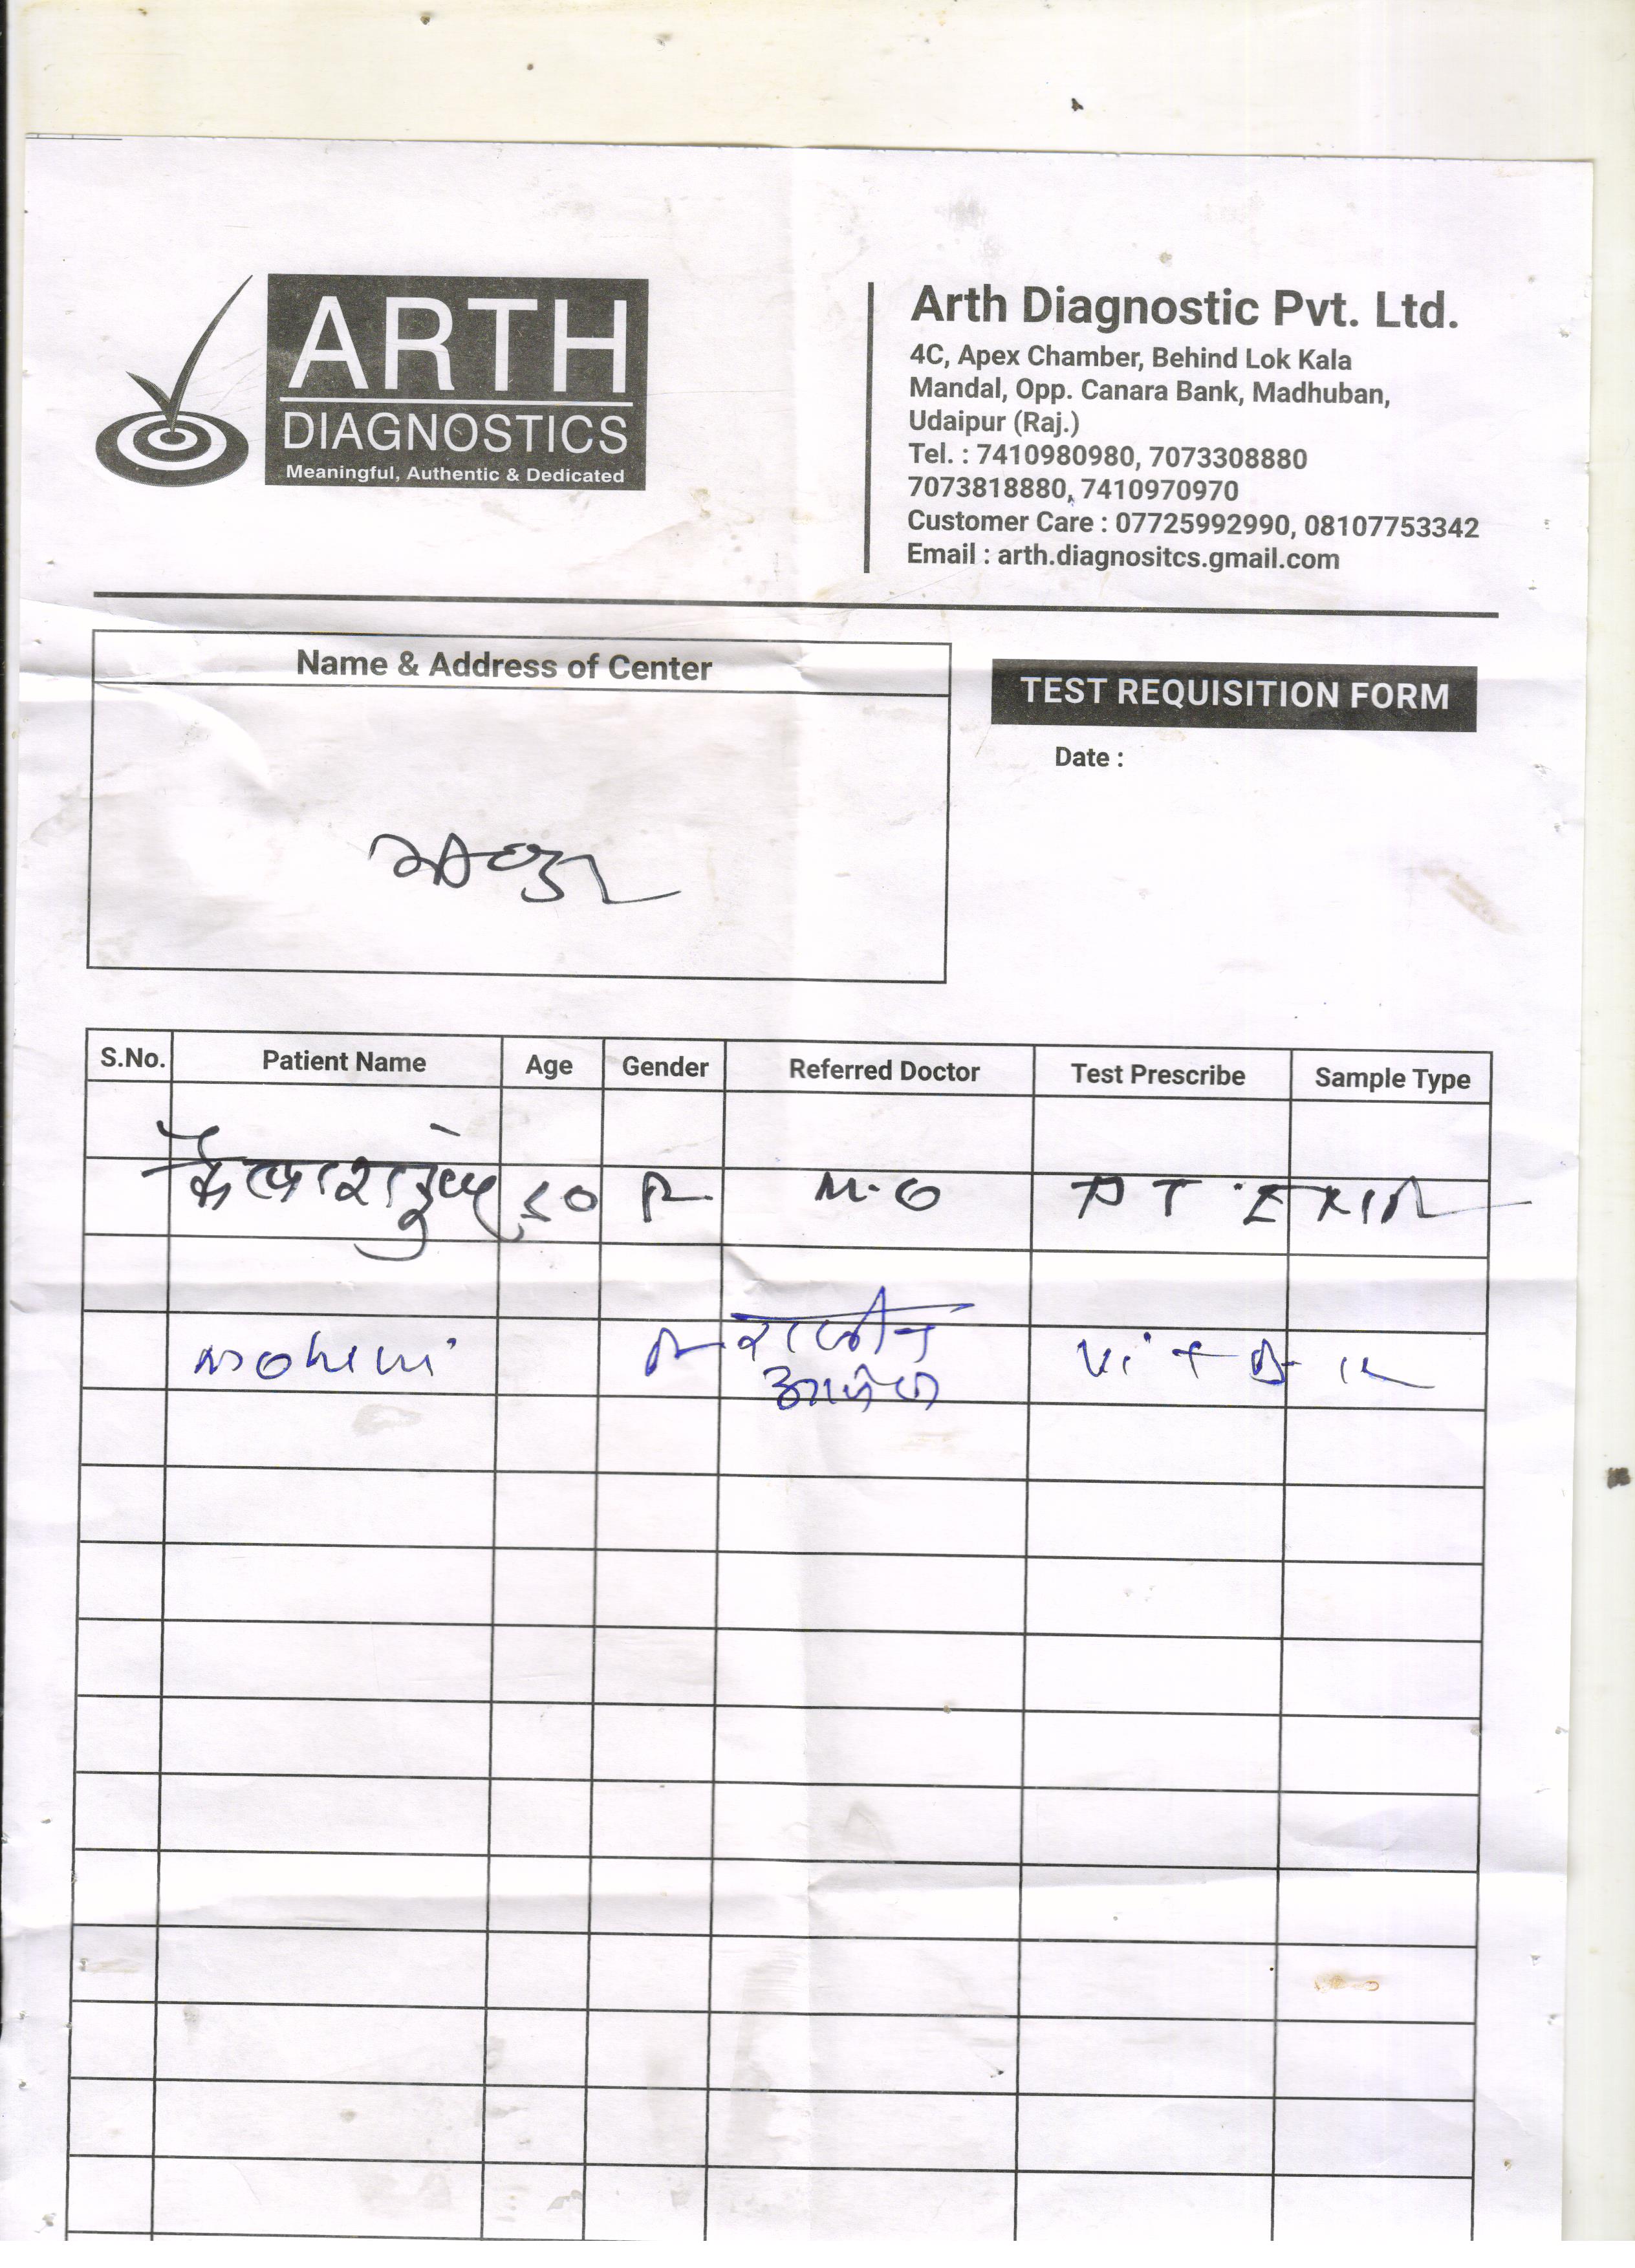 ARTH
DIAGNOSTICS
Meaningful, Authentic & Dedicated
Arth Diagnostic Pvt. Ltd.
4C, Apex Chamber, Behind Lok Kala
Mandal, Opp. Canara Bank, Madhuban,
Udaipur (Raj.)
Tel. : 7410980980, 7073308880
7073818880, 7410970970
Customer Care : 07725992990, 08107753342
Email : arth.diagnositcs.gmail.com
Name & Address of Center
TEST REQUISITION FORM
Date :
S.No. Patient Name Age Gender Referred Doctor Test Prescribe Sample Type
M.O
Mohini Vit B 12